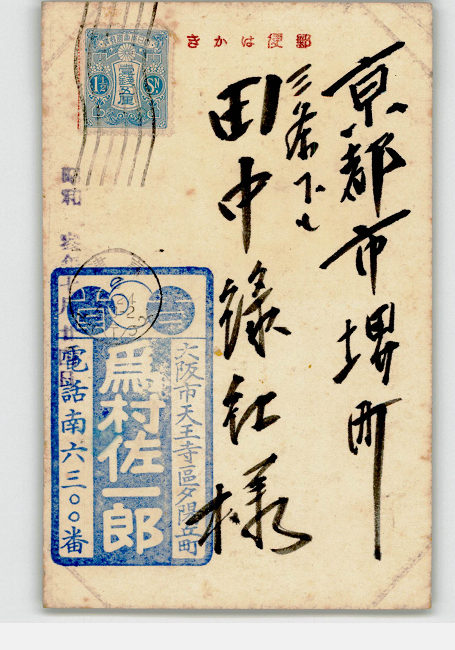 郵便はかき
京都市堺町
三条下ル
田中緑紅様
1½ Sn
昭和
大阪市天王寺區夕陽丘町
爲村佐一郎
電話南六三〇〇番